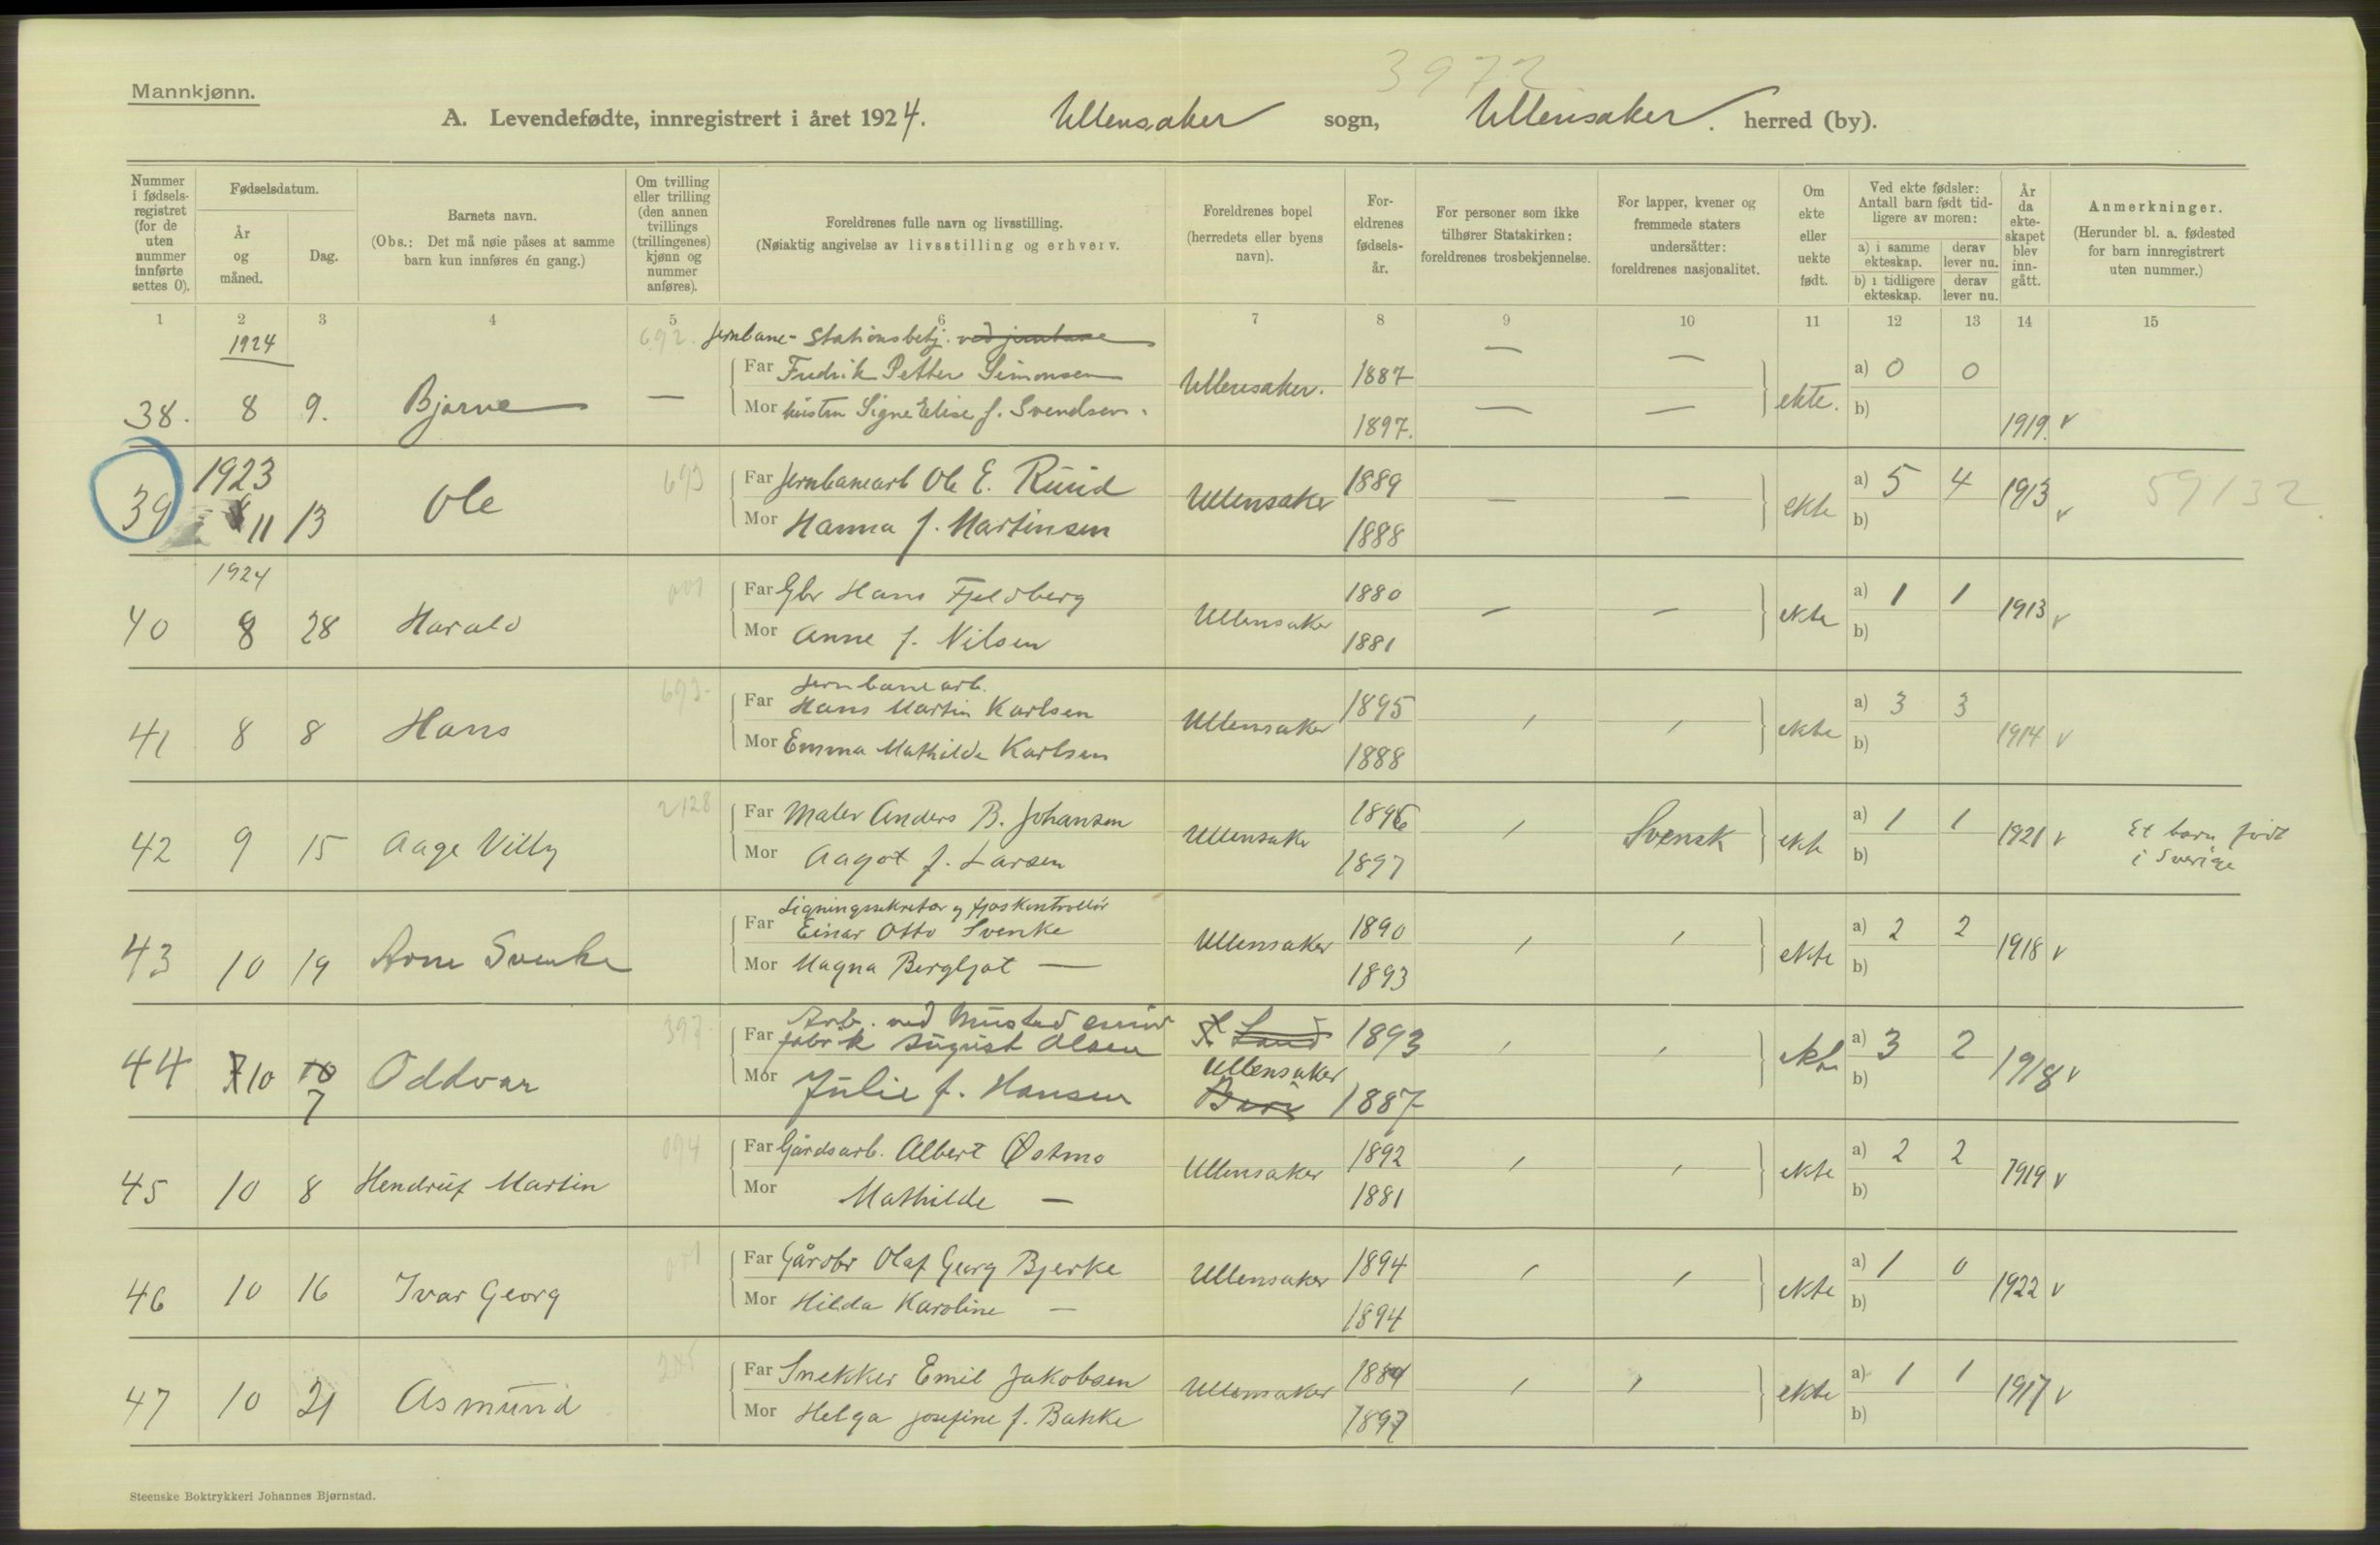 3972
Mannkjønn.
A. Levendefødte, innregistrert i året 1924. Ullensaker sogn, Ullensaker. herred (by).
Nummer i fødselsregistret (for de uten nummer innførte settes 0).
Fødselsdatum.
År og måned.
Dag.
Barnets navn.
(Obs.: Det må nøie påses at samme barn kun innføres én gang.)
Om tvilling eller trilling (den annen tvillings (trillingenes) kjønn og nummer anføres).
Foreldrenes fulle navn og livsstilling.
(Nøiaktig angivelse av livsstilling og erhverv.
Foreldrenes bopel (herredets eller byens navn).
Foreldrenes fødselsår.
For personer som ikke tilhører Statskirken: foreldrenes trosbekjennelse.
For lapper, kvener og fremmede staters undersåtter: foreldrenes nasjonalitet.
Om ekte eller uekte født.
Ved ekte fødsler: Antall barn født tidligere av moren:
a) i samme ekteskap. derav lever nu.
b) i tidligere ekteskap. derav lever nu.
År da ekteskapet blev inngått.
Anmerkninger.
(Herunder bl. a. fødested for barn innregistrert uten nummer.)
1 2 3 4 5 6 7 8 9 10 11 12 13 14 15
1924 692. Jernbane- Stationsbetj. ved jernbane
Far Fredrik Petter Simonsen 1887 — — a) 0 0
38. 8 9. Bjarne — Ullensaker. ekte.
Mor hustru Signe Elise f. Svendsen. 1897. — — b) 1919. v
1923 693 Far Jernbanearb Ole E. Ruud 1889 a) 5 4
39 8 11 13 Ole Ullensaker — — ekte 1913 v 59132
Mor Hanna f. Martinsen 1888 b)
1924 001 Far Gbr Hans Fjeldberg 1880 a) 1 1
40 8 28 Harald Ullensaker — — ekte 1913 v
Mor Anne f. Nilsen 1881 b)
693. Jernbanearb.
Far Hans Martin Karlsen 1895 a) 3 3
41 8 8 Hans Ullensaker ekte 1914 v
Mor Emma Mathilde Karlsen 1888 b)
2128 Far Maler Anders B. Johansen 1896 a) 1 1
42 9 15 Aage Villy Ullensaker Svensk ekte 1921 v Et barn født
Mor Aagot f. Larsen 1897 b) i Sverige
Ligningssekretær og kontrollör
Far Einar Otto Svenke 1890 a) 2 2
43 10 19 Arne Svenke Ullensaker ekte 1918 v
Mor Magna Bergljot — 1893 b)
397 Arb. ved Mustad
Far fabrik August Olsen X Land 1893 a) 3 2
44 7 10 10 7 Oddvar Ullensaker ekte 1918 v
Mor Julie f. Hansen Berti 1887 b)
094 Far Gårdsarb. Albert Østmo 1892 a) 2 2
45 10 8 Hendrik Martin Ullensaker ekte 1919 v
Mor Mathilde — 1881 b)
001 Far Gårdbr Olaf Georg Bjerke 1894 a) 1 0
46 10 16 Ivar Georg Ullensaker ekte 1922 v
Mor Hilda Karoline — 1894 b)
Far Snekker Emil Jakobsen 1889 a) 1 1
47 10 21 Asmund Ullensaker ekte 1917 v
Mor Helga Josefine f. Bakke 1897 b)
Steenske Boktrykkeri Johannes Bjørnstad.